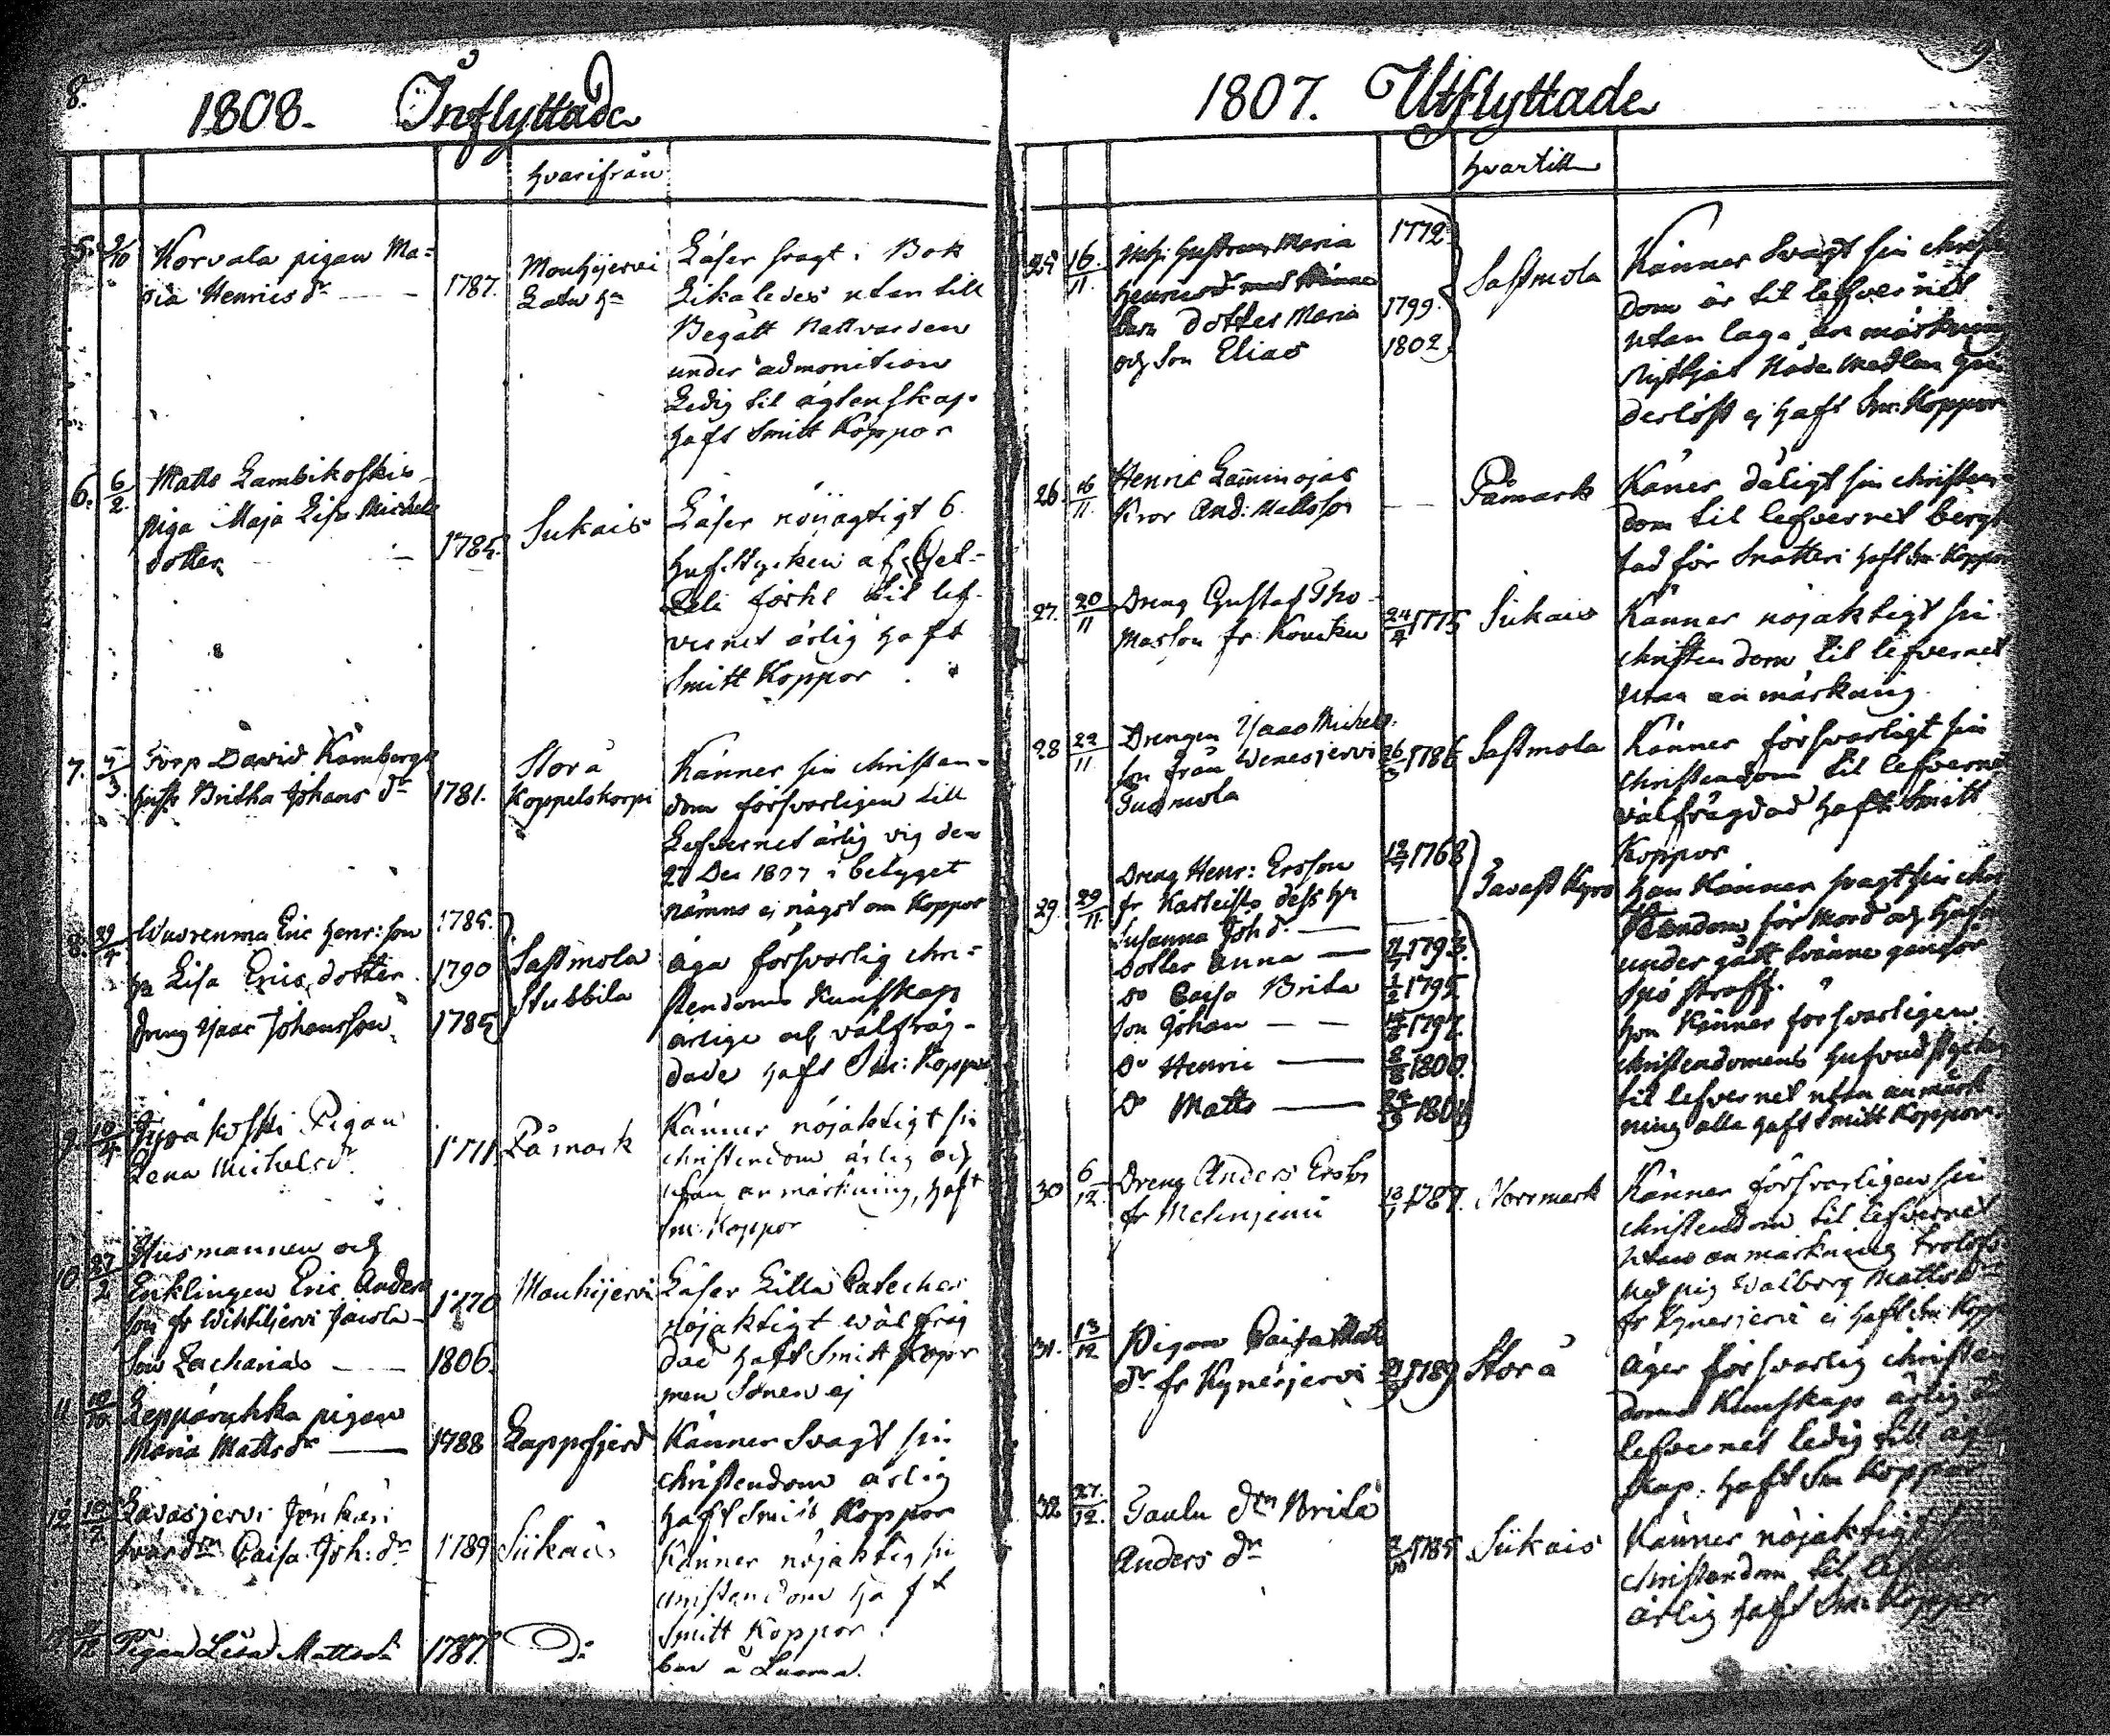 8.
1808. Inflyttade
hvarifrån
5. 9/10 Korvala pigan Ma=
ria Henrics dr — 1787.
Mouhijervi
Läser svagt i Bok
Likaledes utan till
Begått Nattvarden
under admonition
Ledig til ägtenskap.
haft Smitt Koppor
6. 6/2. Matts Lambikoskis
piga Maja Lisa Michels
dotter — 1785.
Siikais
Läser nöijagtigt 6.
hufstycken af
förhl til lef-
vernet ärlig haft
Smitt Koppor
7. 7/3. Torp David Kambergs
hust Britha Johans dr 1781.
Storå
Koppelskorpi
Känner sin christen=
dom försvarligen till
Lefvernet ärlig vig den
27 Dec 1807 i betyget
nämns ej någst om Koppor
8. 29/4 Wuorenma Eric Henr: son 1785.
h Lisa Erics dotter 1790
dreng Isaac Johansson 1785
Sastmola
Stubbila
äga försvarlig chri=
stendoms Kunskap
ärlige och välfräg-
dade haft Sm: Koppor
9. 10/4 koski Pigan
Lena Michelsdr 1771.
Påmark
Känner nöjaktigt sin
christendom ärlig och
utan anmärkning, haft
Sm: Koppor
10 27/2 Husmannen och
Enklingen Eric Anders
son fr 1770
Son Zacharias — 1806.
Mouhijervi
Läser Lilla Cateches
nöjaktigt wälfräg
dad haft Smitt Koppr
men Sonen ej
11 10/10 Leppäruhka pigan
Maria Mattsdr — 1788
Lappfjerd
Känner Svagt sin
christendom ärlig
haft Smitt Koppor
12 Lavasjervi
Caisa Joh: dr 1789
Siikais
Känner nöjaktig sin
christendom haft
Smitt Koppor
Pigan Lisa Mattsdr 1787.
Do
bor å Luoma.
1807. Utflyttade
hvartill
25 16/11. Maria 1772
1799.
barn dotter Maria
och Son Elias 1802.
Sastmola
Känner Svagt sin christen
dom är til lefvernet
utan laga anmärkning
Nyttjat Nåde Medlen
ej haft Sm: Koppor
26. 16/11. Henric Lamminojas
And: Mattsson —
Påmark
Käner dåligt sin christen-
dom til lefvernet
tad för Snatteri haft Sm: Koppor
27. 20/11 Dreng Gustaf Tho-
masson fr 24/4 1775
Siikais
Känner nöjaktigt sin
christendom til lefvernet
utan anmärkning.
28 22/11. Drengen Isaac Michels
son från Wenesjervi 26/3 1786
Sastmola
Känner försvarligt sin
Christendom til lefvernet
välfrägdad haft Smitt
Koppor
29. 29/11. Dreng Henr: Ersson 1768
fr dess h
Susanna Joh d. —
dotter Anna — 1793.
Do Caisa Brita 1/2 1795
Son Johan — 1797.
Do Henric — 8/8 1800.
Do Matts —
Tavast Kyro
Han känner svagt sin chri
stendom för Mord och
undergått tvänne gånger
Spö straff.
hon Känner försvarligen
christendomens hufvudstycken
til lefvernet utan anmärk
ning alla haft Smitt Koppor.
30 6/12. Dreng Anders Ersson
fr 1787.
Norrmark
Känner försvarligen sin
christendom til lefvernet
utan anmärkning trolofd
med pig Walborg Mattsdr
fr Kynerjervi ej haft Sm: Kopp
31. 13/12 Pigan Caisa Matts
dr fr Kynerjervi 1789
Storå
äger försvarlig christen
doms Kunskap ärlig
lefvernet ledig till
skap. haft Sm Koppor
32 27/12. Taulu dtn Brita
Anders dr 1785
Siikais
Känner nöjaktigt
christendom til
ärlig haft Sm: Koppor